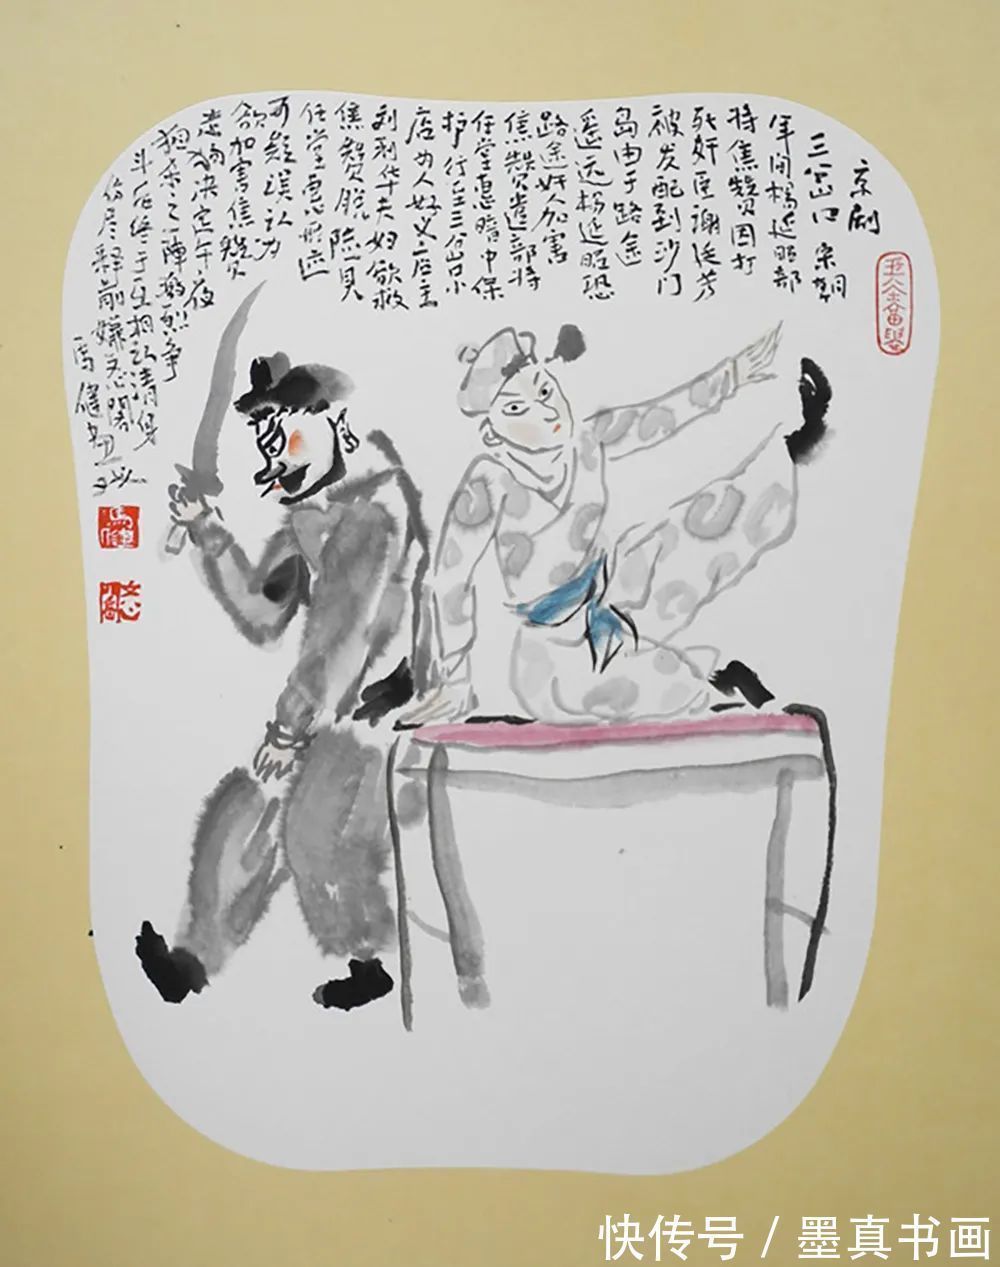 京剧
三岔口 宋朝
年间杨延昭部
将焦赞因打
死奸臣谢廷芳
被发配到沙门
岛由于路途
遥远杨延昭恐
路途奸人加害
焦赞遣部将
任堂惠暗中保
护行至三岔口小
店内人好义店主
刘利华夫妇欲救
焦赞脱险见
任堂惠形迹
可疑误认为
欲加害焦赞
决定午夜
之一阵激烈争
斗后终于互相认清身
份尽释前嫌
马健
马健
快传号 / 墨真书画